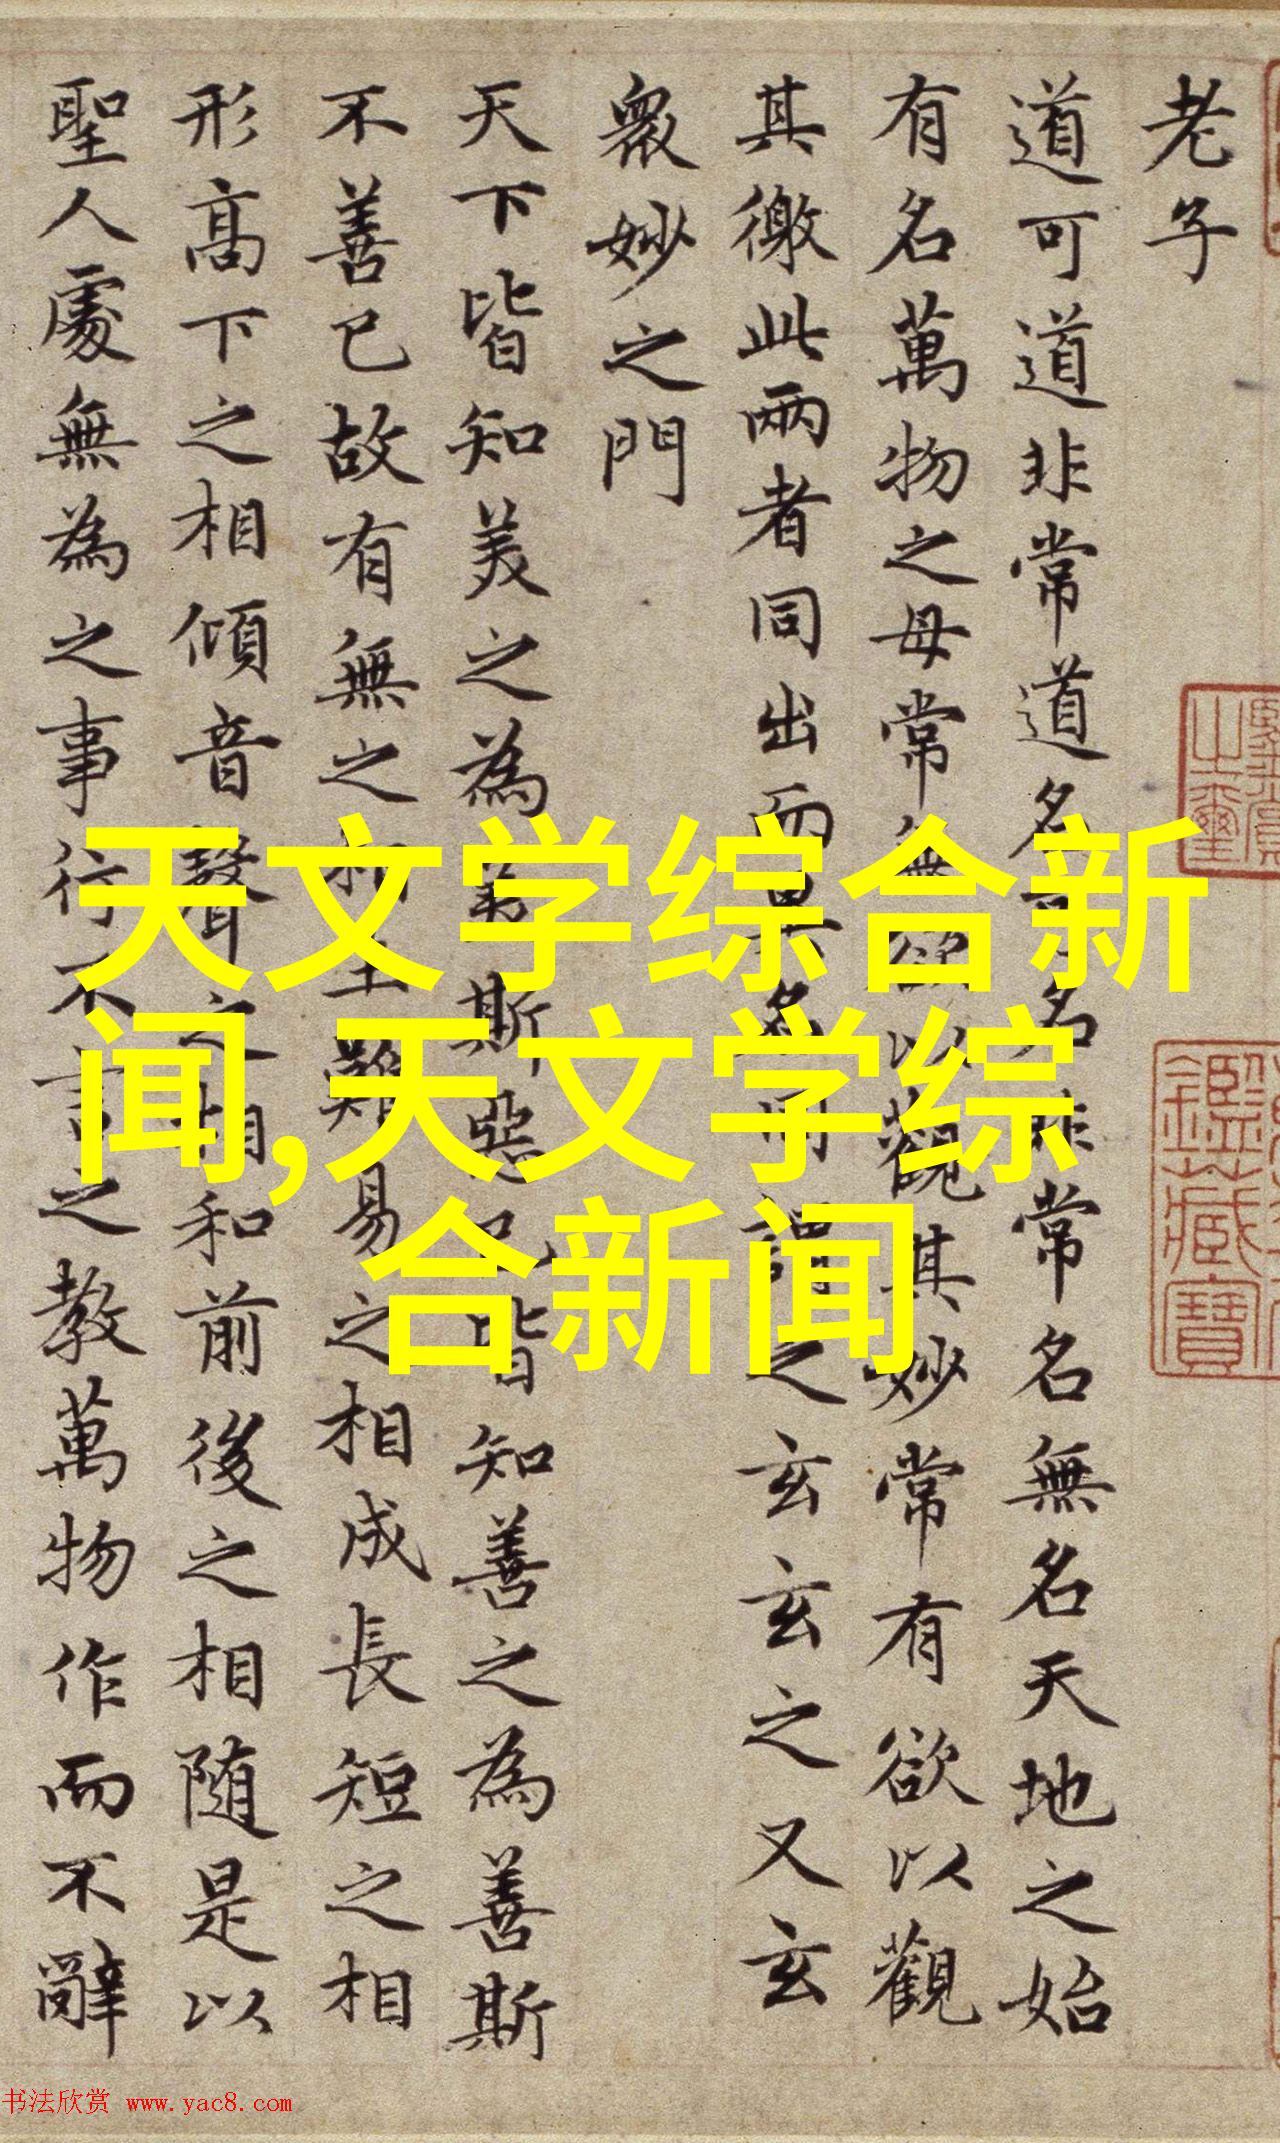 老子
道可道非常道名可名非常名無名天地之始
有名萬物之母常無欲以觀其妙常有欲以觀
其徼此兩者同出而異名同謂之玄玄之又玄
衆妙之門
天下皆知美之為美斯惡已皆知善之為善斯
不善已故有無之相生難易之相成長短之相
形高下之相傾音聲之相和前後之相随是以
聖人處無為之事行不言之教萬物作而不辭
天文学综合新
闻,天文学综
合新闻
书法欣赏 www.yac8.com